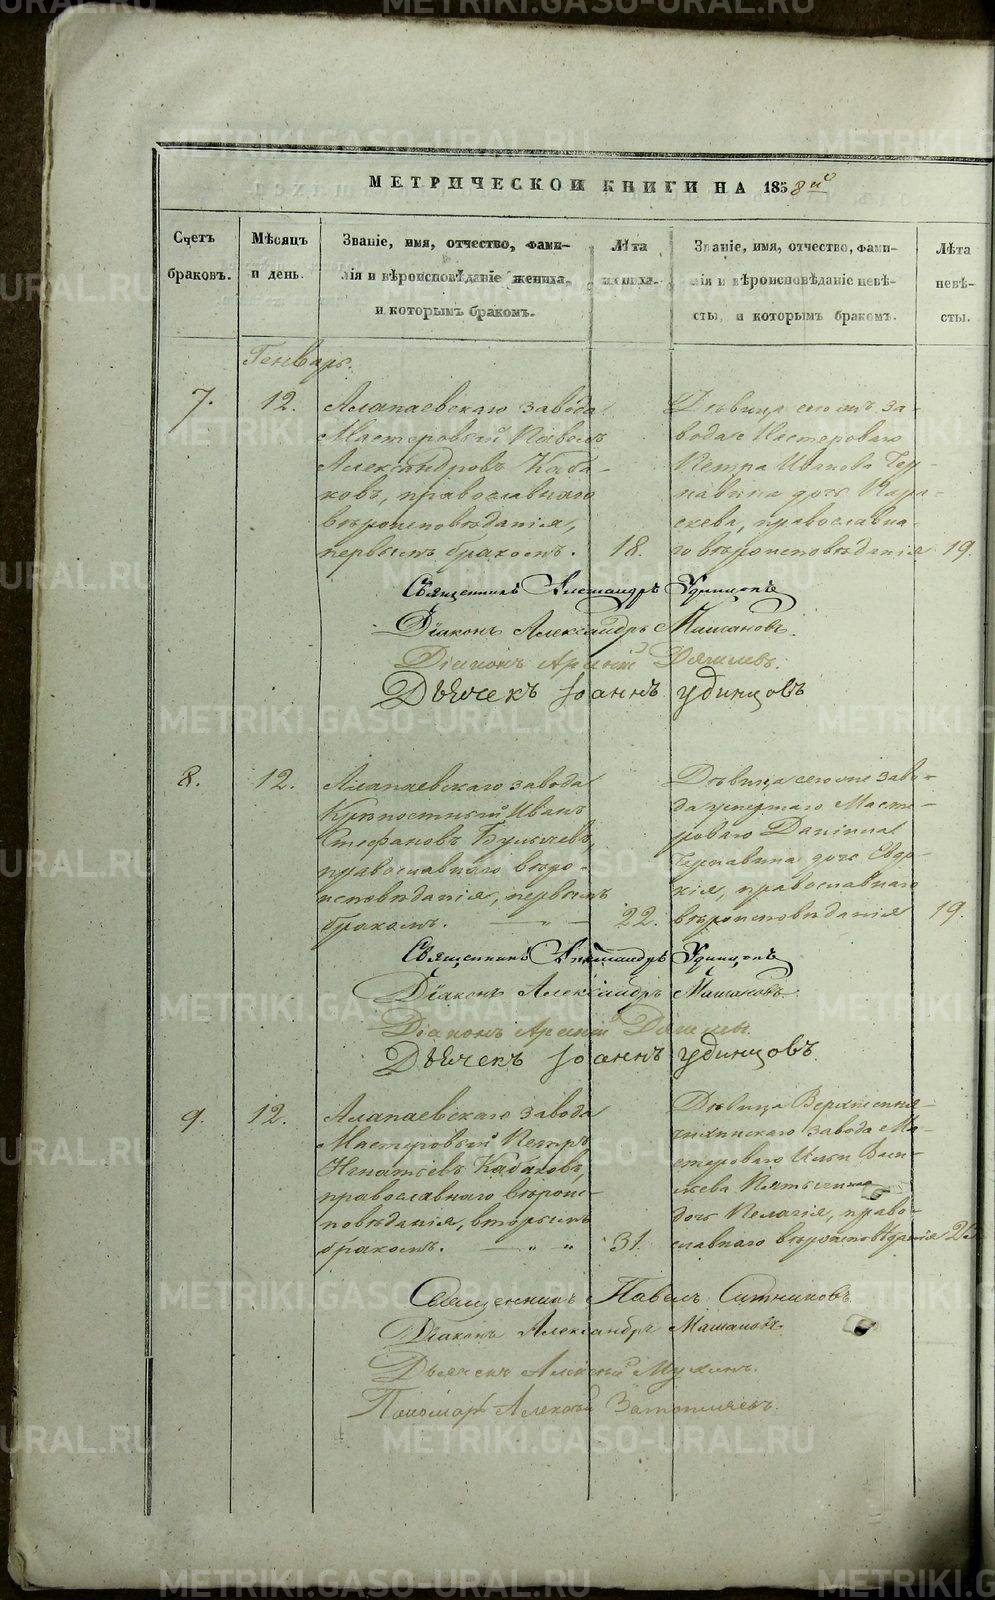 МЕТРИЧЕСКОЙ КНИГИ НА 1858й
Счетъ браковъ.
Мѣсяцъ и день.
Званіе, имя, отчество, фами-
лія и вѣроисповѣданіе жениха,
и которымъ бракомъ.
Лѣта жениха.
Званіе, имя, отчество, фами-
лія и вѣроисповѣданіе невѣ-
сты, и которымъ бракомъ.
Лѣта невѣ-
сты.
Генварь.
7.
12.
Алапаевскаго завода
Мастеровый Павелъ
Александровъ Каба-
ковъ, православнаго
вѣроисповѣданія,
первымъ бракомъ.
18.
Дѣвица сего жъ за-
вода Мастероваго
Петра Иванова
дочь Пара-
скева, православна-
го вѣроисповѣданія
19.
Священникъ Александръ Удинцовъ
Діаконъ Александръ Машановъ.
Діаконъ Арсеній Дягилевъ.
Дьячекъ Іоаннъ Удинцовъ
8.
12.
Алапаевскаго завода
Крѣпостный Иванъ
Стефановъ Булычевъ,
православнаго вѣро-
исповѣданія, первымъ
бракомъ.
22.
Дѣвица сего же заво-
да умершаго Масте-
роваго Даніила
дочь Евдо-
кія, православнаго
вѣроисповѣданія
19.
Священникъ Александръ Удинцовъ
Діаконъ Александръ Машановъ.
Діаконъ Арсеній Дягилевъ.
Дьячекъ Іоаннъ Удинцовъ.
9.
12.
Алапаевскаго завода
Мастеровый Петръ
Игнатьевъ Кабаковъ,
православнаго вѣроис-
повѣданія, вторымъ
бракомъ.
31.
Дѣвица Верхнесиня-
чихинскаго завода Ма-
стероваго Ильи Васи-
льева
дочь Пелагія, право-
славнаго вѣроисповѣданія
Священникъ Павелъ Ситниковъ.
Діаконъ Александръ Машановъ
Дьячекъ Алексѣй Мухинъ.
Пономарь Алексѣй
METRIKI.GASO-URAL.RU